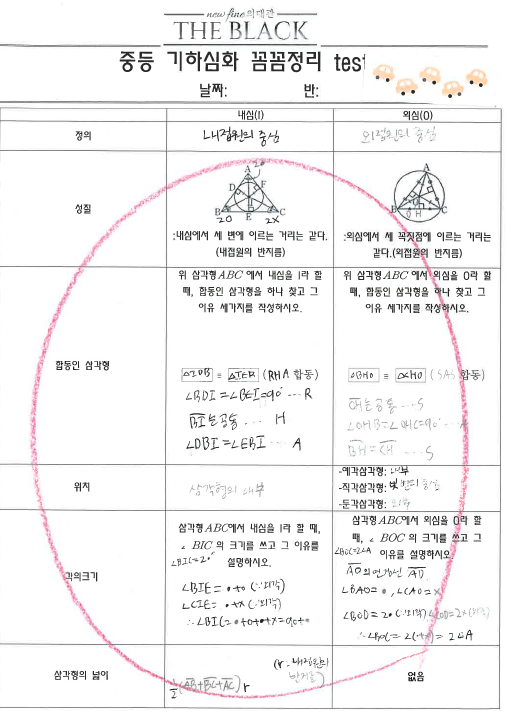 new fine의대관
THE BLACK
중등 기하심화 꼼꼼정리 test
날짜: 반:
내심(I) 외심(O)
정의 내접원의 중심 외접원의 중심
성질
:내심에서 세 변에 이르는 거리는 같다.
(내접원의 반지름)
:외심에서 세 꼭짓점에 이르는 거리는
같다.(외접원의 반지름)
합동인 삼각형
위 삼각형ABC에서 내심을 I라 할
때, 합동인 삼각형을 하나 찾고 그
이유 세가지를 작성하시오.
≡ (RHA 합동)
∠BDI=∠BEI=90° … R
BI는 공통 … H
∠DBI=∠EBI … A
위 삼각형ABC에서 외심을 O라 할
때, 합동인 삼각형을 하나 찾고 그
이유 세가지를 작성하시오.
△BHO ≡ △CHO (SAS 합동)
OH는 공통 … S
∠OHB=∠OHC=90° … A
BH=CH … S
위치 삼각형의 내부
-예각삼각형: 내부
-직각삼각형: 빗변의 중심
-둔각삼각형: 외부
각의크기
삼각형ABC에서 내심을 I라 할 때,
∠BIC의 크기를 쓰고 그 이유를
설명하시오.
∠BIE= •+o (∵외각)
∠CIE= •+x (∵외각)
삼각형ABC에서 외심을 O라 할
때, ∠BOC의 크기를 쓰고 그
∠BOC=2∠A 이유를 설명하시오.
AO의 연장선 AD
∠BAO=•, ∠CAO=x
∠BOD=2• (∵외각), ∠COD=2x (외각)
∴∠BOC=2(•+x)=2∠A
삼각형의 넓이
½(AB+BC+AC)r
(r: 내접원의
반지름)
없음